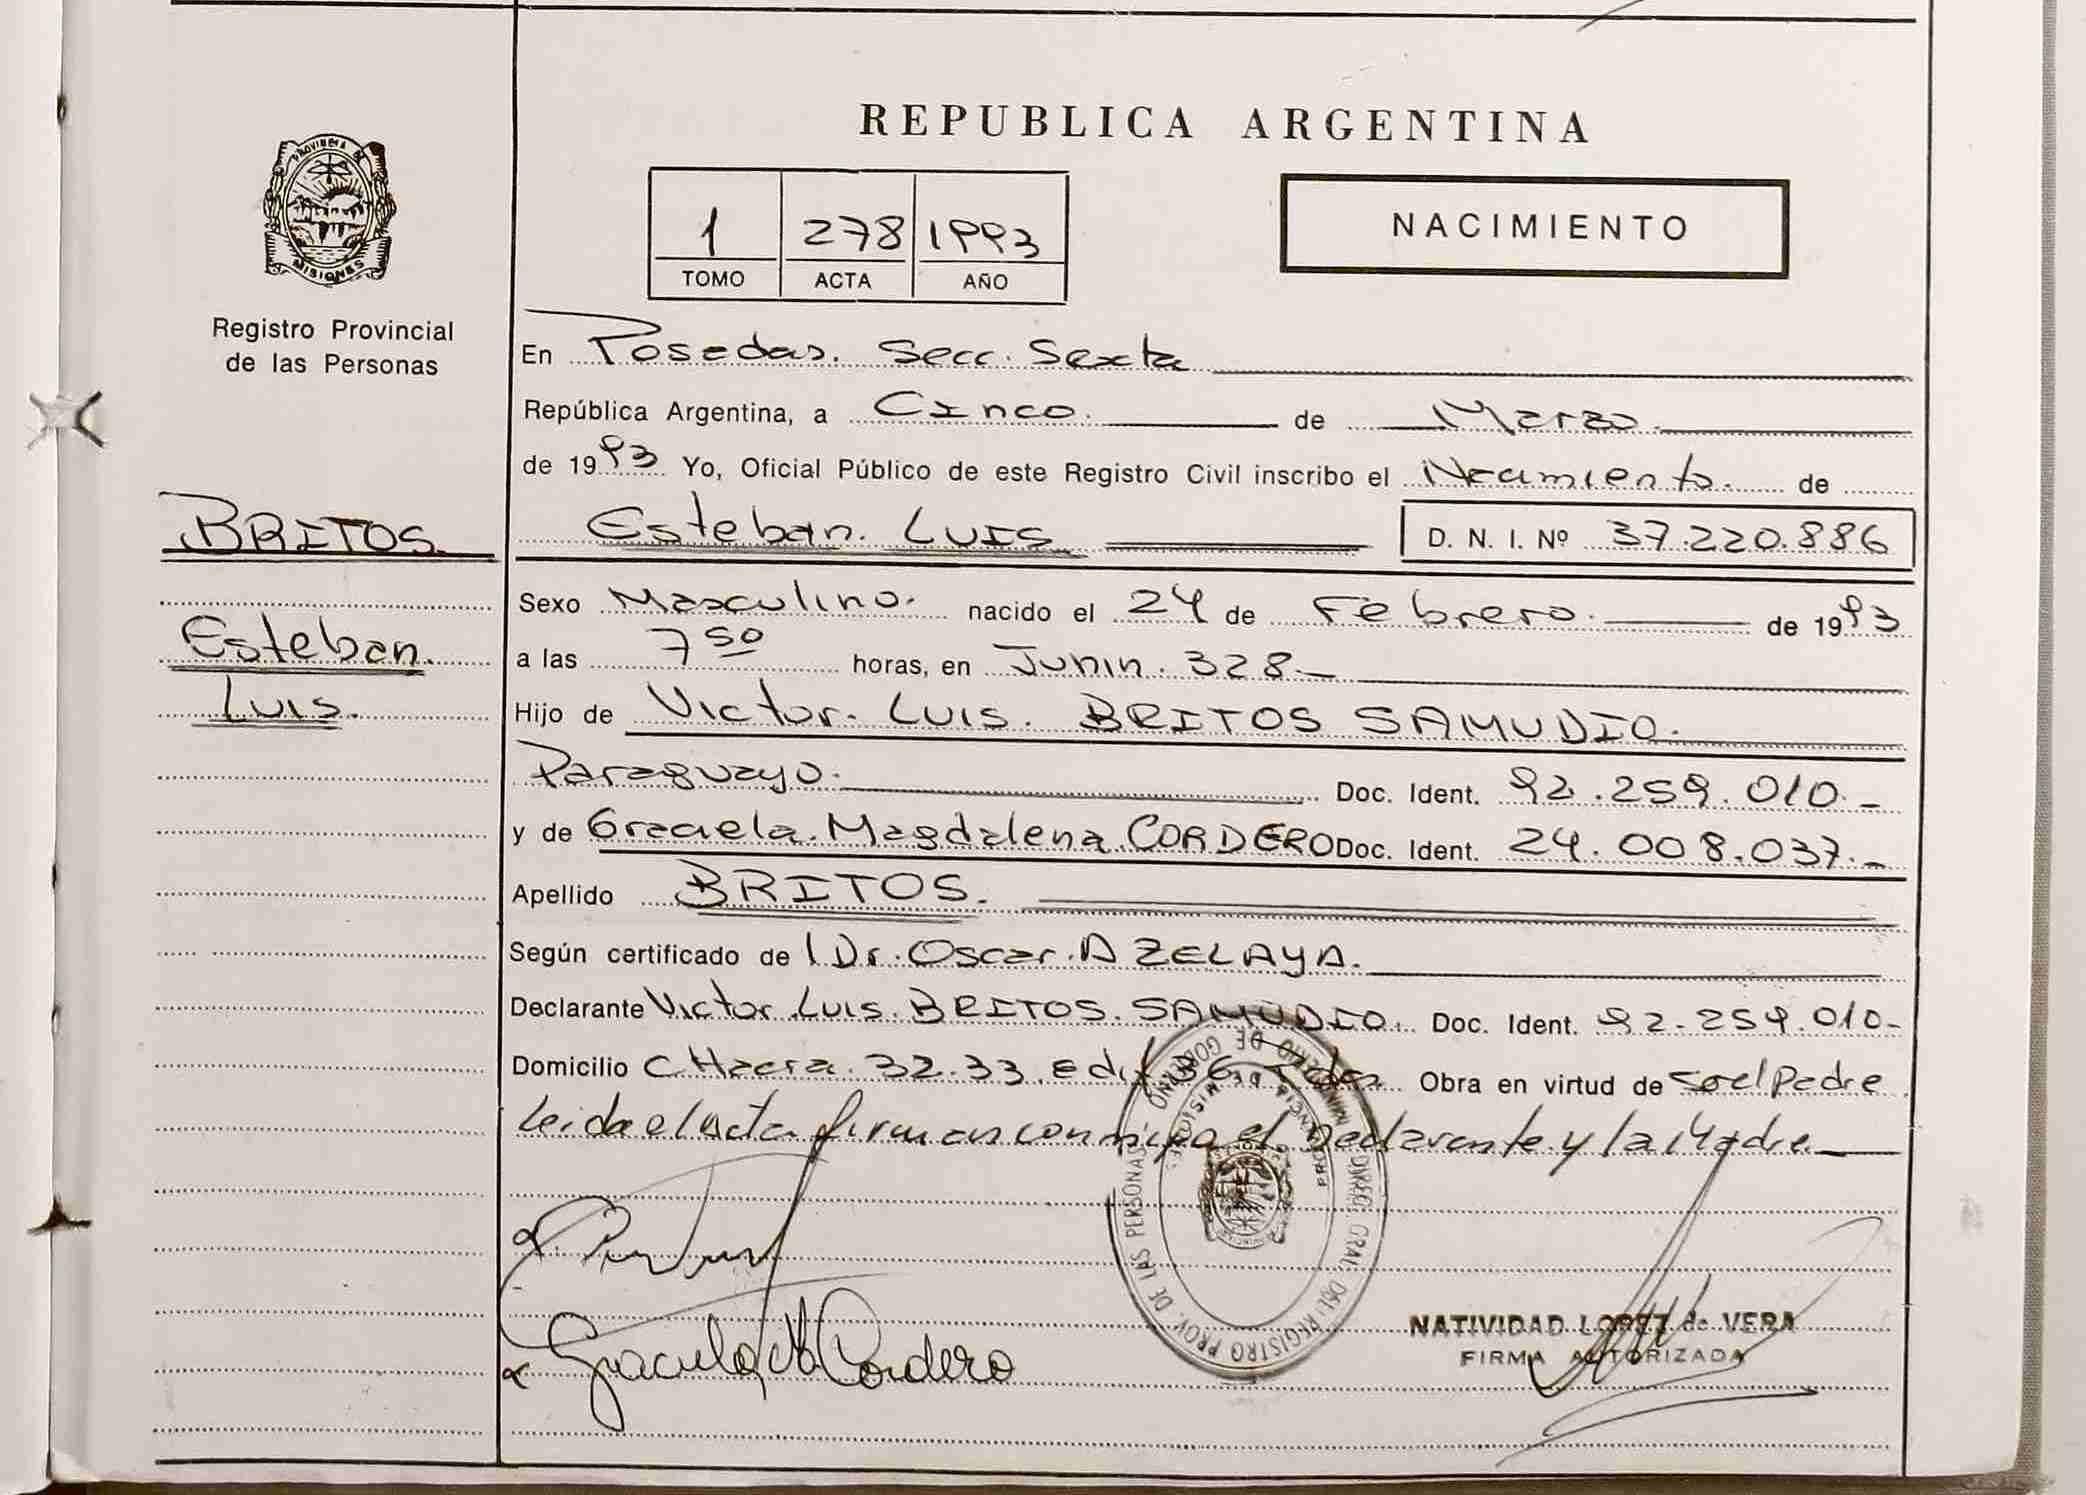 REPUBLICA ARGENTINA
PROVINCIA DE
MISIONES
Registro Provincial
de las Personas
1 278 1993
TOMO ACTA AÑO
NACIMIENTO
En Posadas. Secc. Sexta
República Argentina, a Cinco. de Marzo.
de 1993 Yo, Oficial Público de este Registro Civil inscribo el Nacimiento. de
BRITOS.
Esteban.
Luis.
Esteban. LUIS D. N. I. Nº 37.220.886
Sexo Masculino. nacido el 24 de Febrero. de 1993
a las 7 50 horas, en Junin. 328.-
Hijo de Victor. Luis. BRITOS SAMUDIO.
Paraguayo. Doc. Ident. 92.259.010.-
y de Graciela. Magdalena CORDERO Doc. Ident. 24.008.037.-
Apellido BRITOS.
Según certificado de l Dr. Oscar. A ZELAYA.
Declarante Victor. Luis. BRITOS. SAMUDIO. Doc. Ident. 92.259.010-
Domicilio CHacra. 32.33. edif Obra en virtud de ser el Padre
Leida el Acta firman conmigo el Declarante y la Madre
MINISTERIO DE GOBIERNO
PROVINCIA DE MISIONES
DIREC. GRAL. DEL REGISTRO PROV. DE LAS PERSONAS
Graciela M Cordero
NATIVIDAD LOPEZ de VERA
FIRMA AUTORIZADA